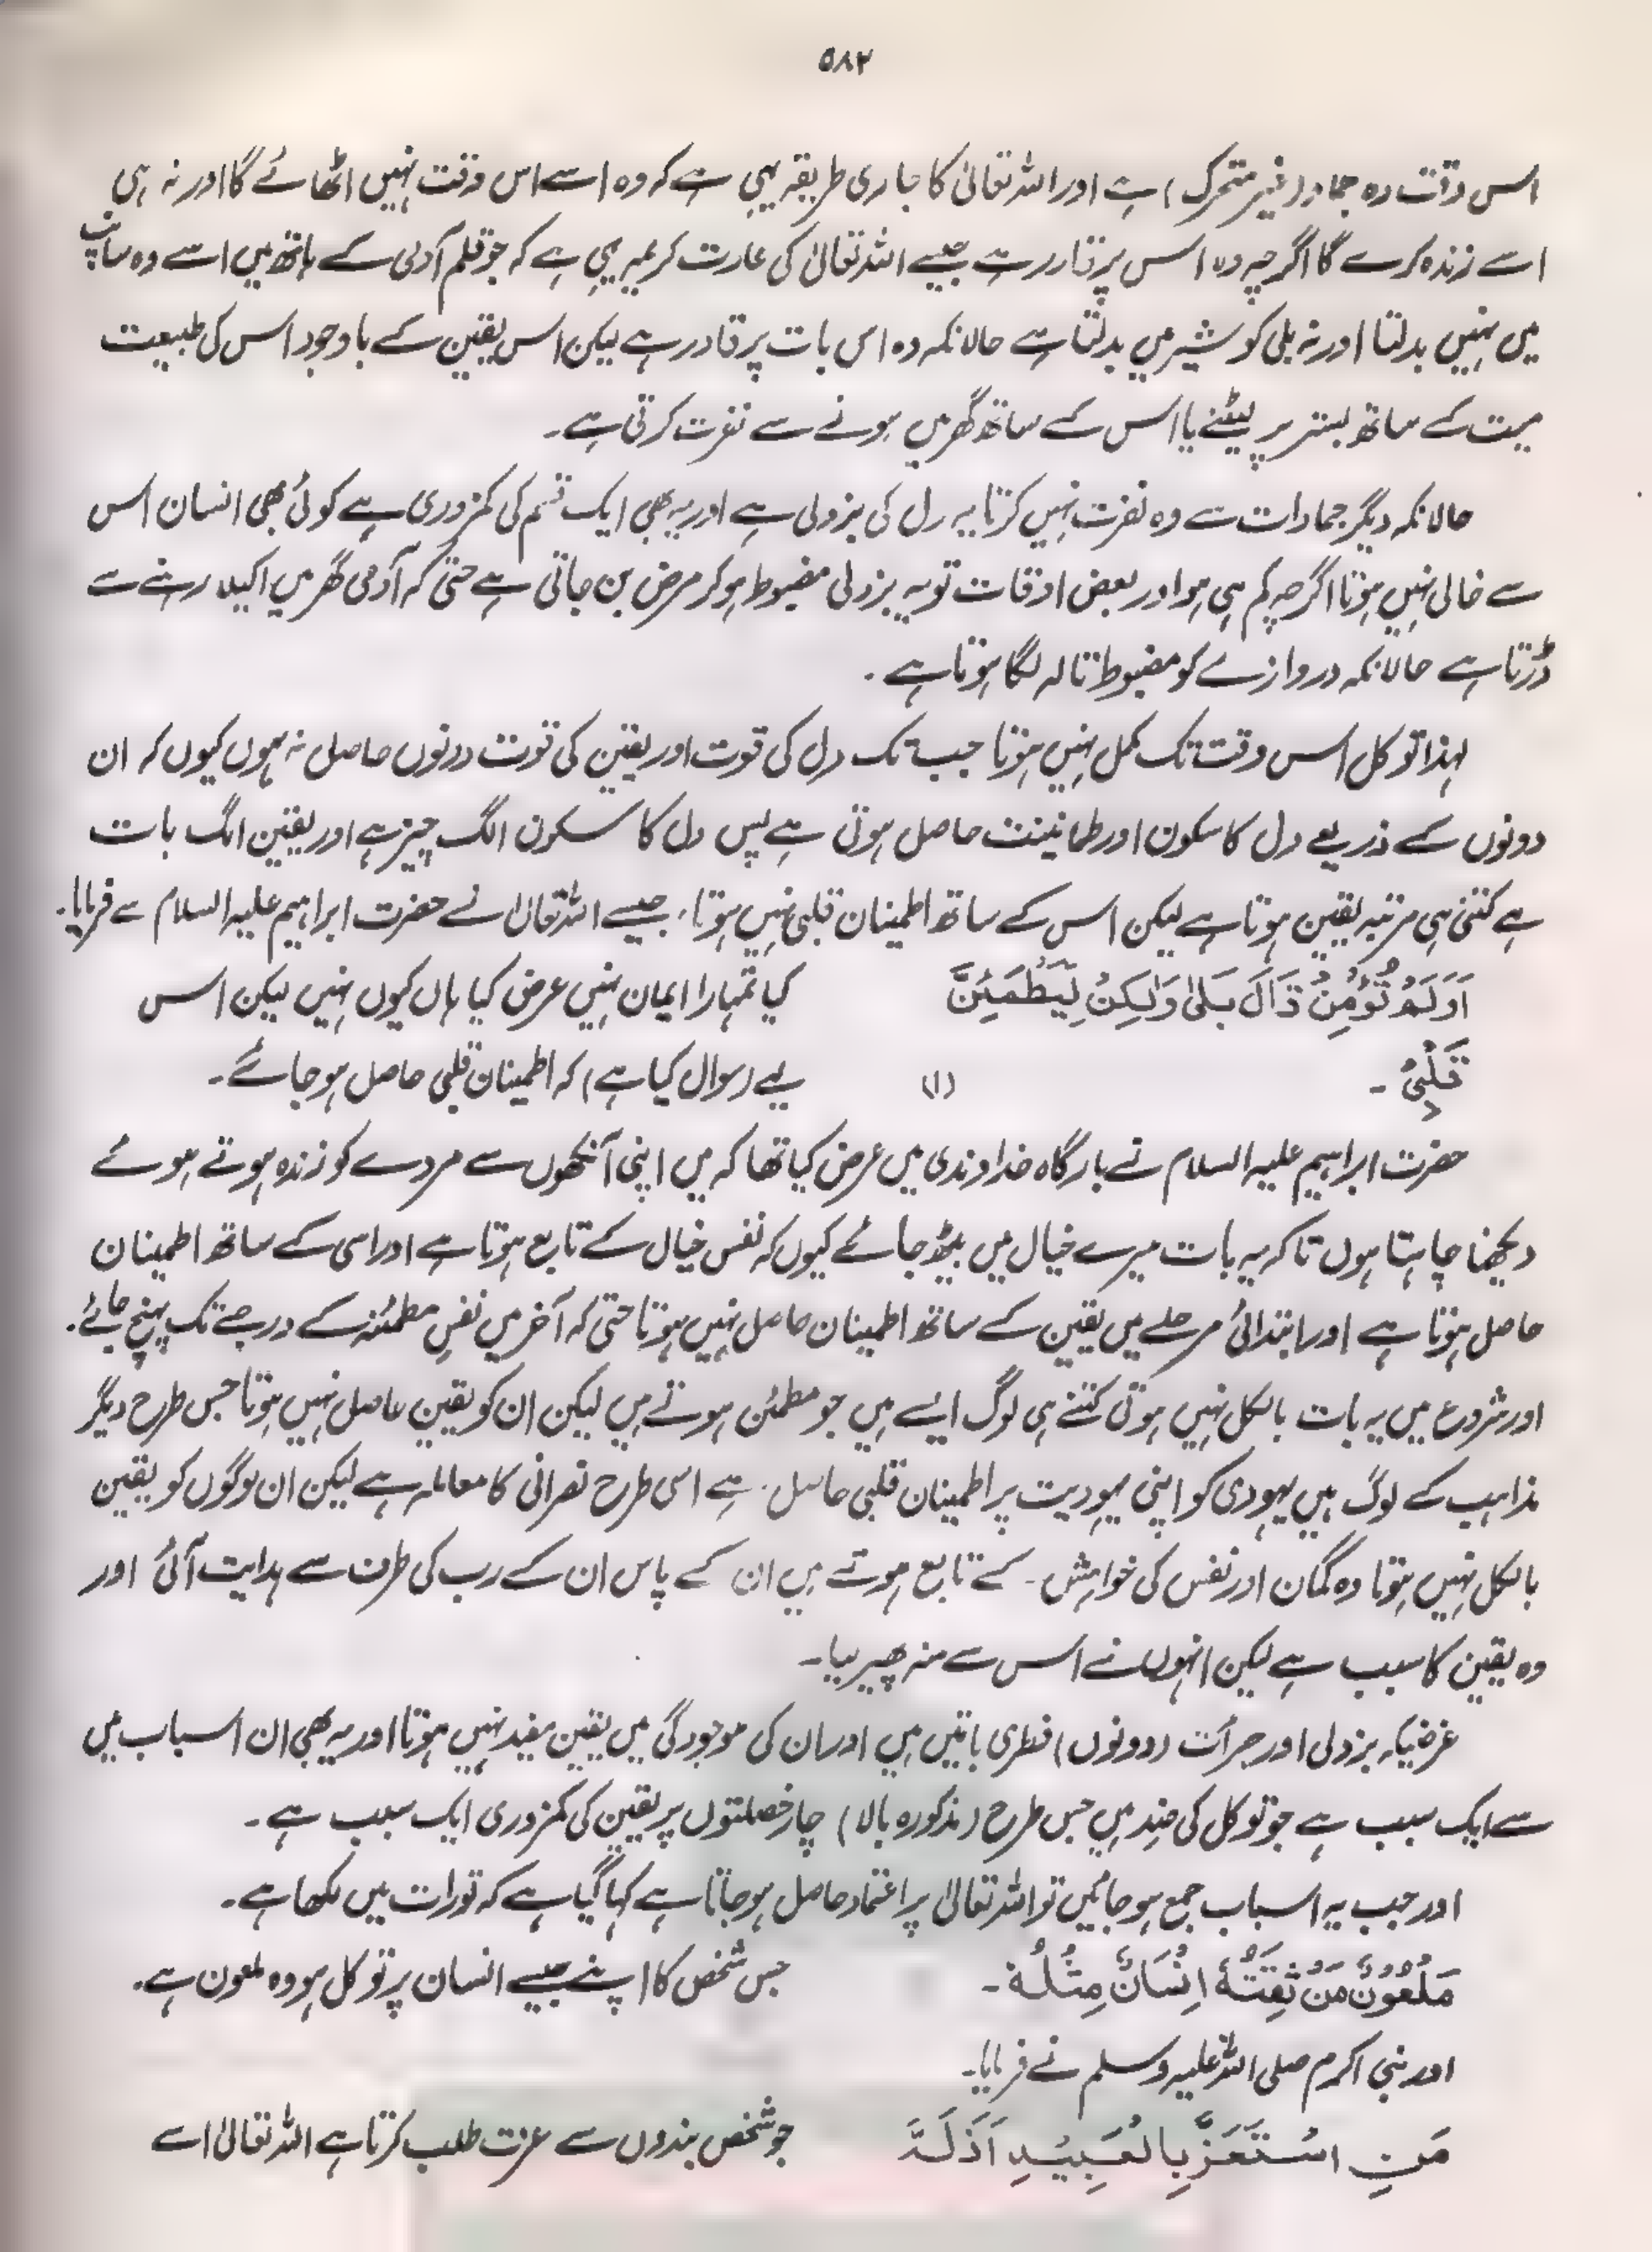 ۵۸۲
اس وقت وہ جماد (غیر متحرک) ہے اور اللہ تعالیٰ کا جاری طریقہ یہی ہے کہ وہ اسے اس وقت نہیں اٹھائے گا اور نہ ہی
اسے زندہ کرے گا اگرچہ وہ اس پر قادر ہے جیسے اللہ تعالیٰ کی عادت کریمہ یہی ہے کہ جو قلم آدمی کے ہاتھ میں اسے وہ سانپ
میں نہیں بدلتا اور نہ بلی کو شیر میں بدلتا ہے حالانکہ وہ اس بات پر قادر ہے لیکن اس یقین کے باوجود اس کی طبیعت
میت کے ساتھ بستر پر لیٹنے یا اس کے ساتھ گھر میں ہونے سے نفرت کرتی ہے۔
حالانکہ دیگر جمادات سے وہ نفرت نہیں کرتا یہ دل کی بزدلی ہے اور یہ بھی ایک قسم کی کمزوری ہے کوئی بھی انسان اس
سے خالی نہیں ہوتا اگرچہ کم ہی ہو اور بعض اوقات تو یہ بزدلی مضبوط ہو کر مرض بن جاتی ہے حتیٰ کہ آدمی گھر میں اکیلا رہنے سے
ڈرتا ہے حالانکہ دروازے کو مضبوط تالہ لگا ہوتا ہے۔
لہذا توکل اس وقت تک مکمل نہیں ہوتا جب تک دل کی قوت اور یقین کی قوت دونوں حاصل نہ ہوں کیوں کہ ان
دونوں کے ذریعے دل کا سکون اور طمانیت حاصل ہوتی ہے پس دل کا سکون الگ چیز ہے اور یقین الگ بات
ہے کتنی ہی مرتبہ یقین ہوتا ہے لیکن اس کے ساتھ اطمینان قلبی نہیں ہوتا، جیسے اللہ تعالیٰ نے حضرت ابراہیم علیہ السلام سے فرمایا۔
اَوَلَمْ تُؤْمِنْ قَالَ بَلیٰ وَلٰکِنْ لِّیَطْمَئِنَّ کیا تمہارا ایمان نہیں عرض کیا ہاں کیوں نہیں لیکن اس
قَلْبِیْ ۔ (۱) لیے (سوال کیا ہے) کہ اطمینان قلبی حاصل ہو جائے۔
حضرت ابراہیم علیہ السلام نے بارگاہ خداوندی میں عرض کیا تھا کہ میں اپنی آنکھوں سے مردے کو زندہ ہوتے ہوئے
دیکھنا چاہتا ہوں تاکہ یہ بات میرے خیال میں بیٹھ جائے کیوں کہ نفس خیال کے تابع ہوتا ہے اور اسی کے ساتھ اطمینان
حاصل ہوتا ہے اور ابتدائی مرحلے میں یقین کے ساتھ اطمینان حاصل نہیں ہوتا حتیٰ کہ آخر میں نفسِ مطمئنہ کے درجے تک پہنچ جائے۔
اور شروع میں یہ بات بالکل نہیں ہوتی کتنے ہی لوگ ایسے ہیں جو مطمئن ہوتے ہیں لیکن ان کو یقین حاصل نہیں ہوتا جس طرح دیگر
مذاہب کے لوگ ہیں یہودی کو اپنی یہودیت پر اطمینان قلبی حاصل ہے اسی طرح نصرانی کا معاملہ ہے لیکن ان لوگوں کو یقین
بالکل نہیں ہوتا وہ گمان اور نفس کی خواہش کے تابع ہوتے ہیں ان کے پاس ان کے رب کی طرف سے ہدایت آئی اور
وہ یقین کا سبب ہے لیکن انہوں نے اس سے منہ پھیر لیا۔
غرضیکہ بزدلی اور جرأت (دونوں) فطری باتیں ہیں اور ان کی موجودگی میں یقین مفید نہیں ہوتا اور یہ بھی ان اسباب میں
سے ایک سبب ہے جو توکل کی ضد ہیں جس طرح (مذکورہ بالا) چار خصلتوں پر یقین کی کمزوری ایک سبب ہے۔
اور جب یہ اسباب جمع ہو جائیں تو اللہ تعالیٰ پر اعتماد حاصل ہو جاتا ہے کہا گیا ہے کہ تورات میں لکھا ہے۔
مَلْعُوْنٌ مَنْ ثِقَتُہٗ اِنْسَانٌ مِثْلُہٗ ۔ جس شخص کا اپنے جیسے انسان پر توکل ہو وہ ملعون ہے۔
اور نبی اکرم صلی اللہ علیہ وسلم نے فرمایا۔
مَنِ اسْتَعَزَّ بِالْعَبِیْدِ اَذَلَّہٗ جو شخص بندوں سے عزت طلب کرتا ہے اللہ تعالیٰ اسے